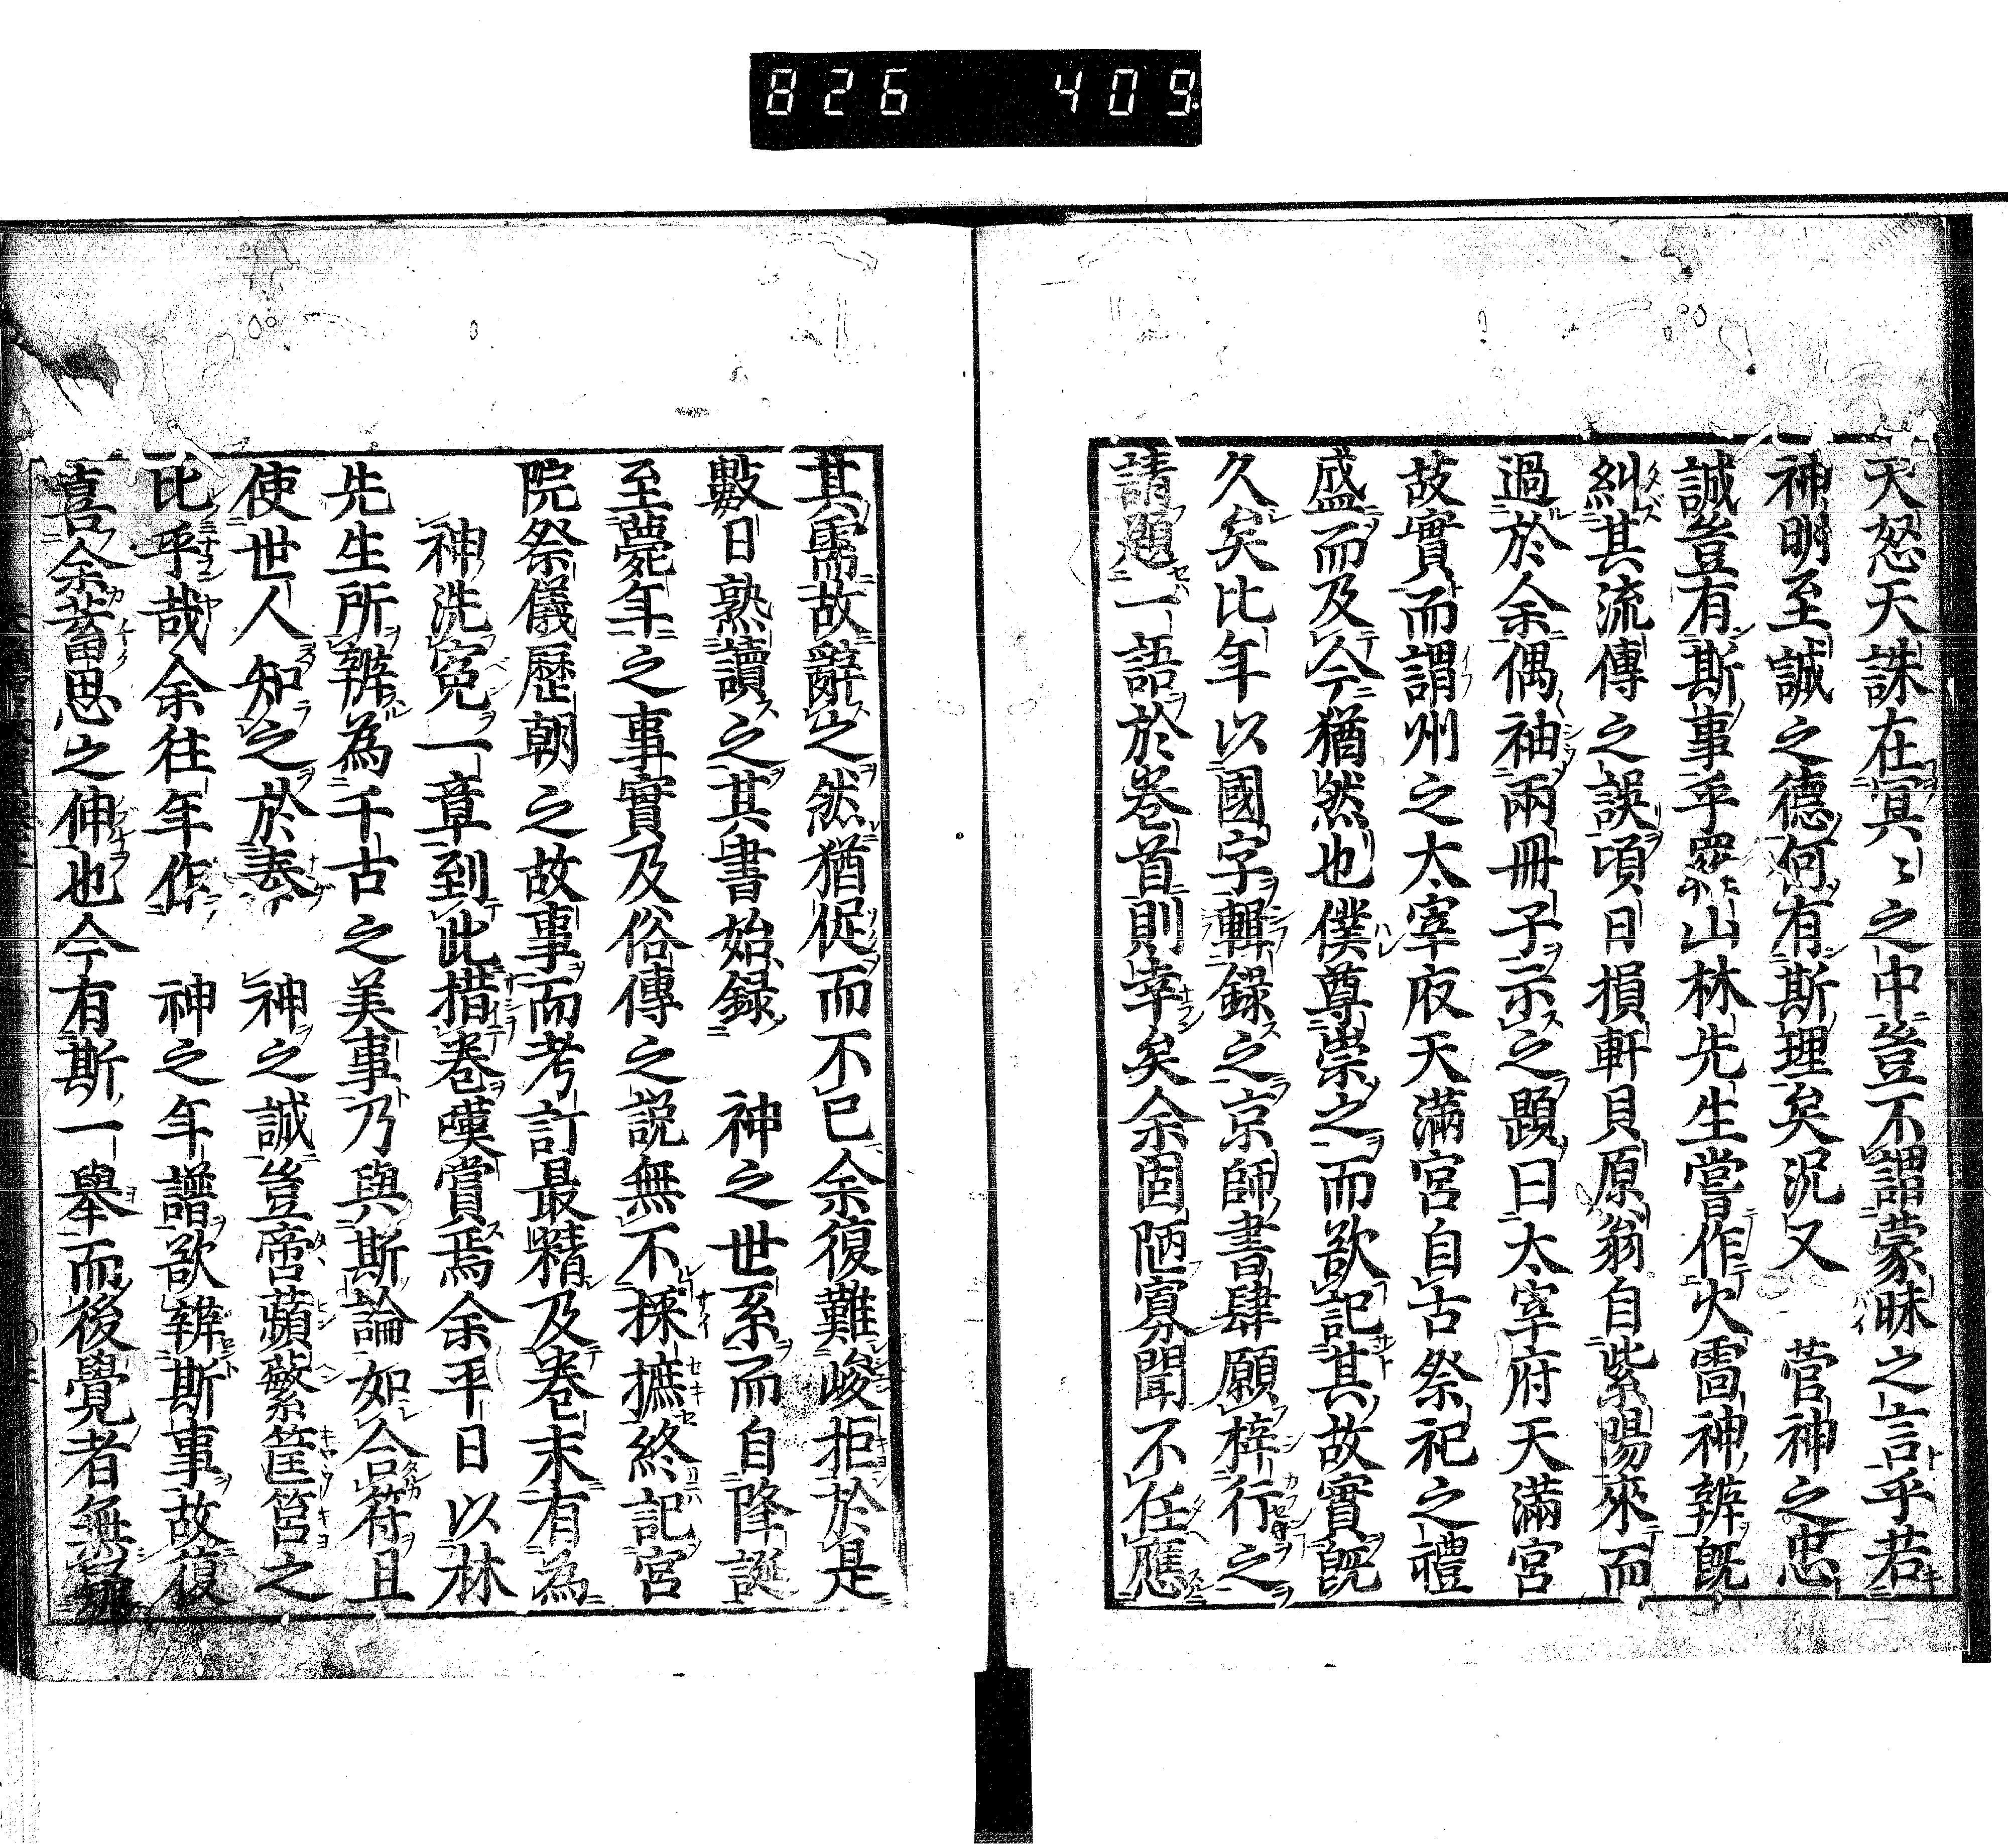 826 409
天怒天誅在冥〻之中豈不謂蒙昧之言乎若
神明至誠之德何有斯理矣況又 菅神之忠
誠豈有斯事乎羅山林先生嘗作火雷神辨既
糾其流傳之誤頃日損軒貝原翁自紫陽來而
過於余偶袖兩冊子示之題曰太宰府天滿宮
故實而謂州之太宰府天滿宮自古祭祀之禮
盛而及今猶然也僕尊崇之而欲記其故實既
久矣比年以國字輯錄之京師書肆願梓行之
請題一語於卷首則幸矣余固陋寡聞不任應
其需故辭之然猶促而不已余復難峻拒於是
數日熟讀之其書始錄 神之世系而自降誕
至薨年之事實及俗傳之說無不採摭終記宮
院祭儀歷朝之故事而考訂最精及卷末有為
神洗冤一章到此措卷嘆賞焉余平日以林
先生所辨為千古之美事乃與斯論如合符且
使世人知之於 神之誠豈啻蘋蘩筐筥之
比乎哉余往年作 神之年譜欲辨斯事故復
喜余蓄思之伸也今有斯一舉而後覺者無